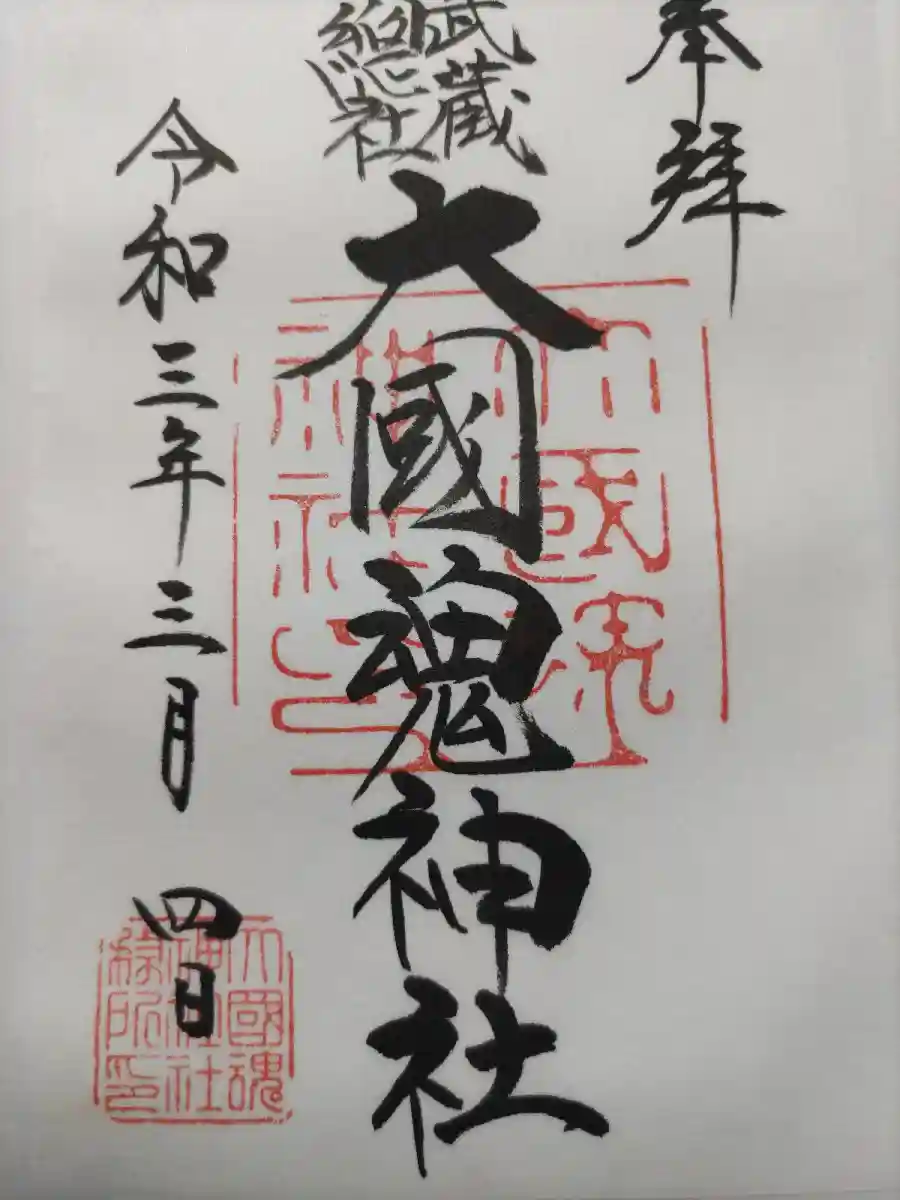 奉拜
武蔵
総社
大國魂神社
令和三年三月四日
大國魂
神社
大國魂
神社
務所印